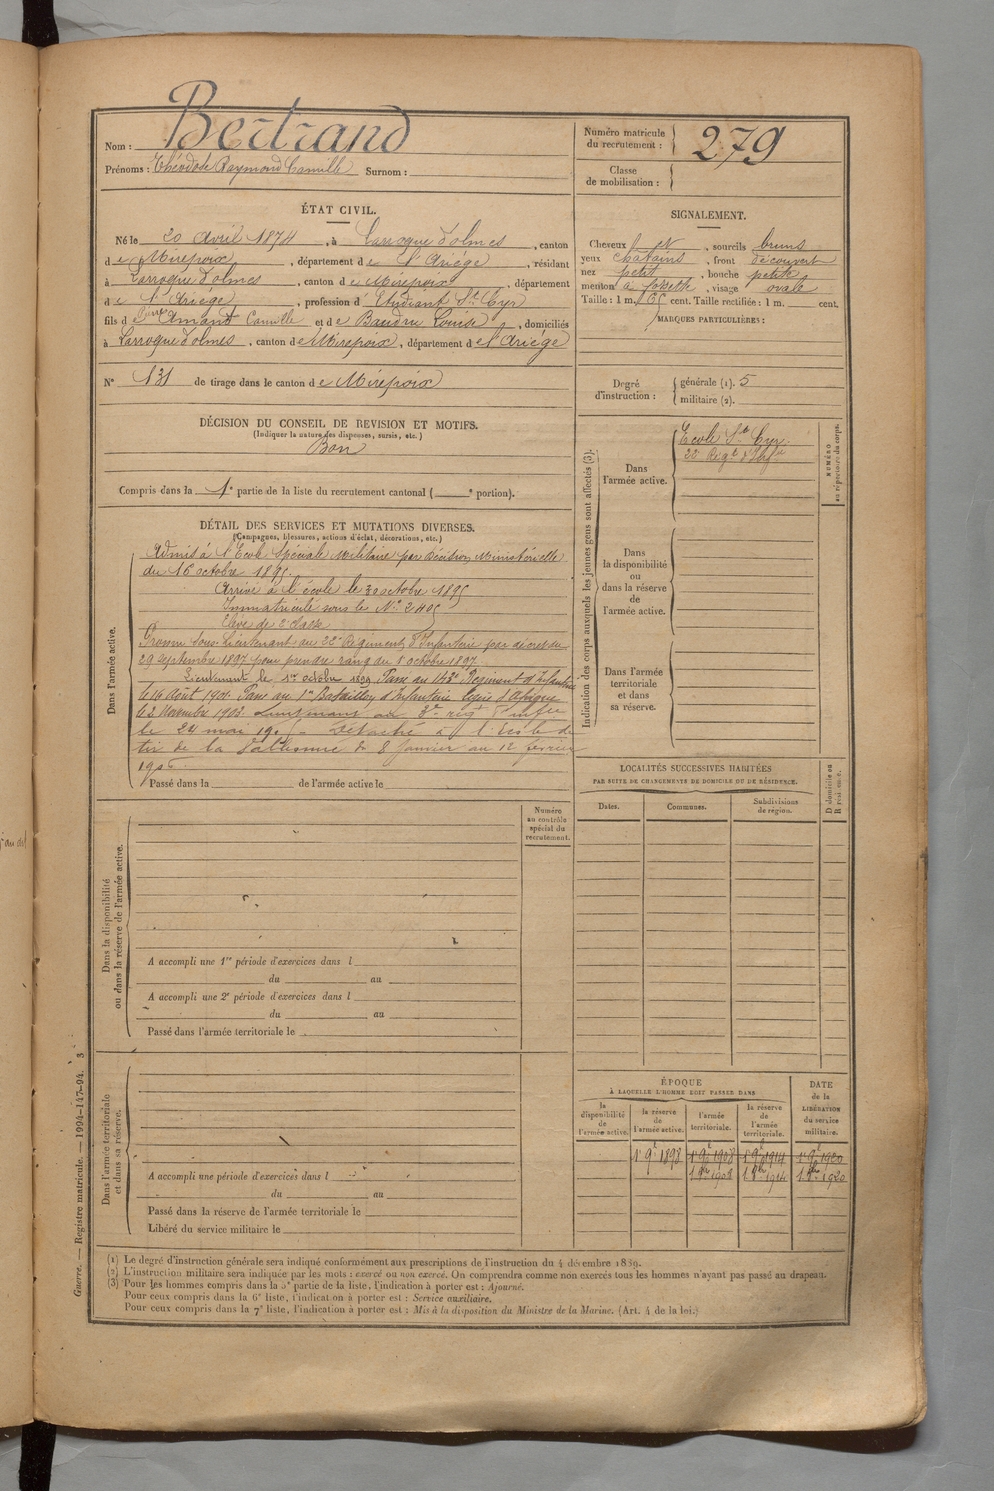 Nom : Bertrand
Prénoms : Théodore Raymond Camille Surnom :
Numéro matricule du recrutement : 279
Classe de mobilisation :
ÉTAT CIVIL.
Né le 20 Avril 1874, à Larroque d'olmes, canton
de Mirepoix, département de l'Ariége, résidant
à Larroque d'olmes, canton de Mirepoix, département
de l'Ariege, profession d'Etudiant St Cyr
fils de Amant Camille et de Baudru Louise, domiciliés
à Larroque d'olmes, canton de Mirepoix, département de l'Ariége
N° 131 de tirage dans le canton de Mirepoix
DÉCISION DU CONSEIL DE REVISION ET MOTIFS.
(Indiquer la nature des dispenses, sursis, etc.)
Bon
Compris dans la 1e partie de la liste du recrutement cantonal ( e portion).
DÉTAIL DES SERVICES ET MUTATIONS DIVERSES.
(Campagnes, blessures, actions d'éclat, décorations, etc.)
Dans l'armée active.
Admis à l'Ecole Spéciale Militaire par décision Ministérielle
du 16 octobre 1895.
Arrivé à l'école le 30 octobre 1895
Immatriculé sous le N° 2405
Elève de 2e classe
Promu Sous-Lieutenant au 22e Régiment d'Infanterie par décret du
29 septembre 1897 pour prendre rang du 1 octobre 1897.
Lieutenant le 1er octobre 1899. Passé au 143e Régiment d'Infanterie
le 16 Août 1901. Passé au 1er Bataillon d'Infanterie légère d'Afrique
le 3 Novembre 1903. Lieutenant au 3e rég d'infie
le 24 mai 190 – Détaché à l'école de
tir de la Valbonne du 8 Janvier au 12 février
190
Passé dans la de l'armée active le
Dans la disponibilité ou dans la réserve de l'armée active.
Numéro au contrôle spécial du recrutement.
A accompli une 1re période d'exercices dans l
du au
A accompli une 2e période d'exercices dans l
du au
Passé dans l'armée territoriale le
Dans l'armée territoriale et dans sa réserve.
A accompli une période d'exercices dans l
du au
Passé dans la réserve de l'armée territoriale le
Libéré du service militaire le
SIGNALEMENT.
Cheveux, sourcils bruns
yeux chatains, front découvert
nez petit, bouche petite
menton à fossette, visage ovale
Taille : 1 m. 65 cent. Taille rectifiée : 1 m. cent.
MARQUES PARTICULIÈRES :
Degré d'instruction : générale (1). 5
militaire (2).
Indication des corps auxquels les jeunes gens sont affectés (3).
Dans l'armée active.
Ecole St Cyr.
22e Régt d'Infie
NUMÉRO au répertoire du corps.
Dans la disponibilité ou dans la réserve de l'armée active.
Dans l'armée territoriale et dans sa réserve.
LOCALITÉS SUCCESSIVES HABITÉES
PAR SUITE DE CHANGEMENTS DE DOMICILE OU DE RÉSIDENCE.
D domicile ou R résidence.
Dates. Communes. Subdivisions de région.
ÉPOQUE
À LAQUELLE L'HOMME DOIT PASSER DANS
la disponibilité de l'armée active. la réserve de l'armée active. l'armée territoriale. la réserve de l'armée territoriale.
DATE de la LIBÉRATION du service militaire.
1er 9bre 1898 1er 9bre 1908 1er 9bre 1914 1er 9bre 1920
1 8bre 1908 1 8bre 1914 1 8bre 1920
(1) Le degré d'instruction générale sera indiqué conformément aux prescriptions de l'instruction du 4 décembre 1889.
(2) L'instruction militaire sera indiquée par les mots : exercé ou non exercé. On comprendra comme non exercés tous les hommes n'ayant pas passé au drapeau.
(3) Pour les hommes compris dans la 5e partie de la liste, l'indication à porter est : Ajourné.
Pour ceux compris dans la 6e liste, l'indication à porter est : Service auxiliaire.
Pour ceux compris dans la 7e liste, l'indication à porter est : Mis à la disposition du Ministre de la Marine. (Art. 4 de la loi.)
Guerre. — Registre matricule. — 1994-147-94. 3